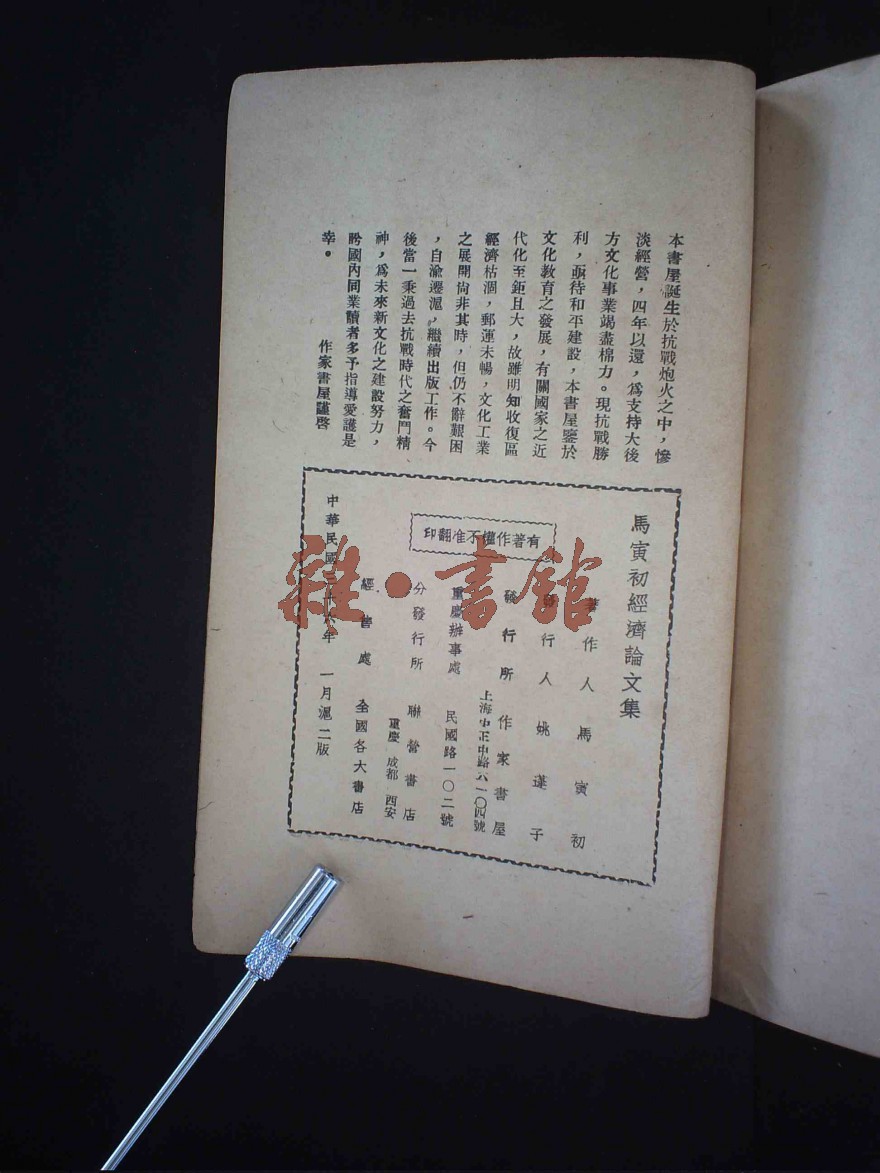 本書屋誕生於抗戰炮火之中，慘
淡經營，四年以還，爲支持大後
方文化事業竭盡棉力。現抗戰勝
利，亟待和平建設，本書屋鑒於
文化教育之發展，有關國家之近
代化至鉅且大，故雖明知收復區
經濟枯涸，郵運未暢，文化工業
之展開尙非其時，但仍不辭艱困
，自渝遷滬，繼續出版工作。今
後當一秉過去抗戰時代之奮鬥精
神，爲未來新文化之建設努力，
盼國內同業讀者多予指導愛護是
幸。
作家書屋謹啓
馬寅初經濟論文集
著作人 馬寅初
發行人 姚蓬子
發行所 作家書屋
上海中正中路六一〇四號
重慶辦事處 民國路一〇二號
分發行所 聯營書店
重慶 成都 西安
經售處 全國各大書店
中華民國三十六年 一月滬二版
有著作權不准翻印
雜·書館